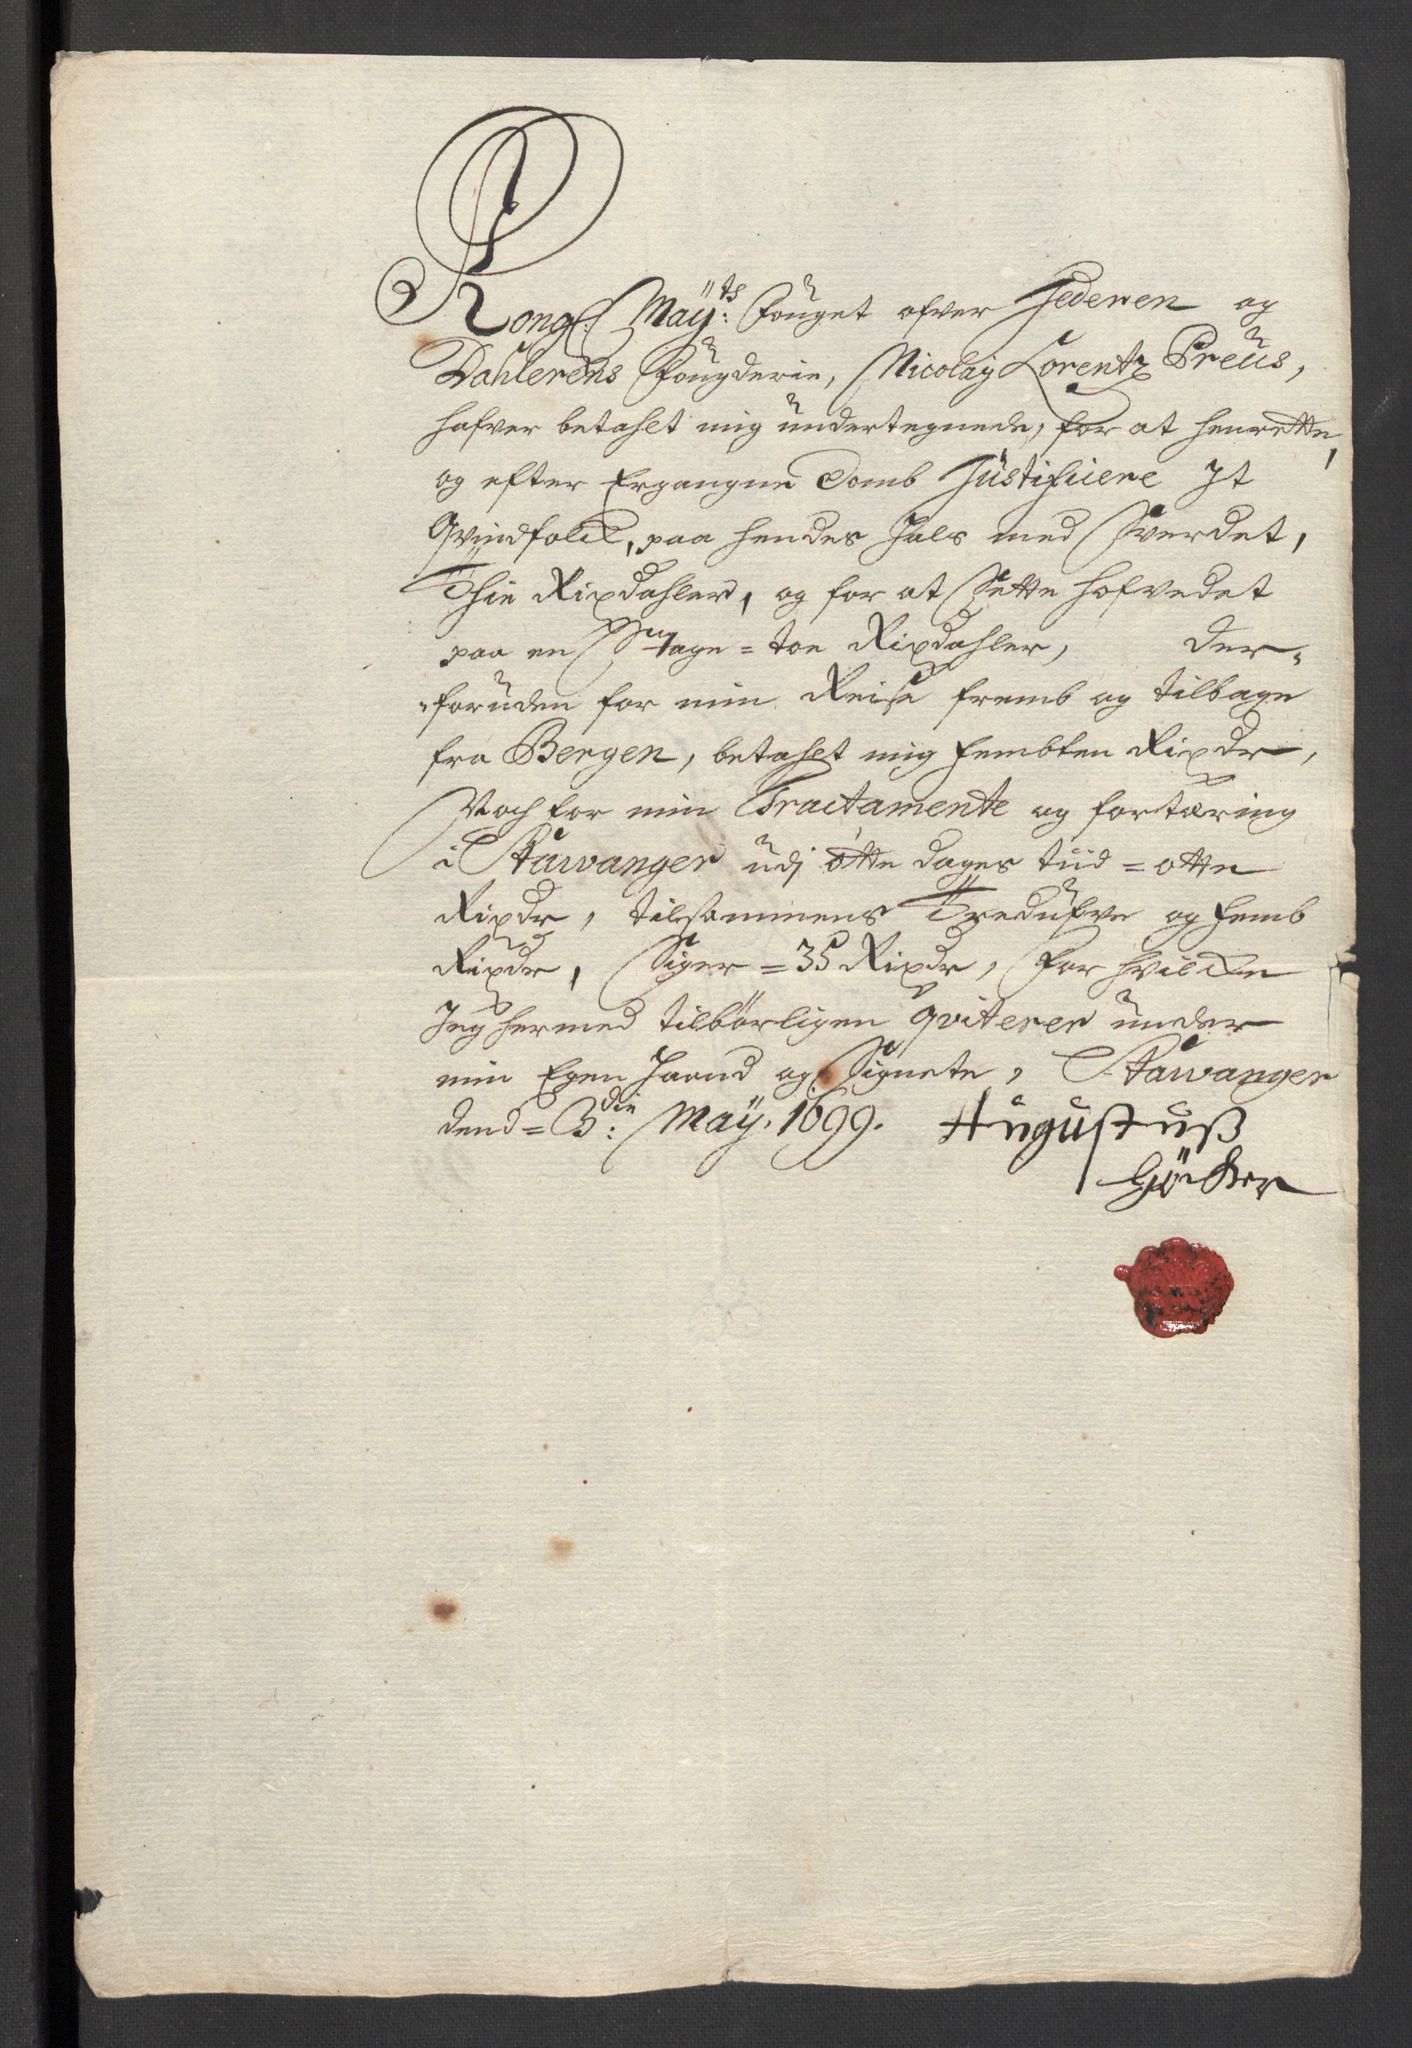 Kongl: Maÿ:ts fouget ofver Jederen og
Dahlerens fougderie, Nicolaÿ Lorentz Preus,
hafver betahlt mig undertegnede, for at henrette,
og efter Ergangne Domb Justificere It
Qvindfolck, paa hendes Hals med Sverdet,
Thie Rixdahler, og for at Sette hofvedet
paa en Stage = toe Rixdahler, der=
=foruden for min Reise fremb og tilbage
fra Bergen, betahlt mig fembten Rixdr,
Noch for min Tractamente og fortæring
i Stawanger udj otte dages tiid = otte
Rixdr, tilsammens Tredufve og femb
Rixdr, Siger = 35 Rixdr, for hvilcke
Jeg hermed tilbörligen qviterer under
min Egen Haand og Signete, Stawanger
dend = 3:die Maÿ. 1699. Augustuß
Göcker